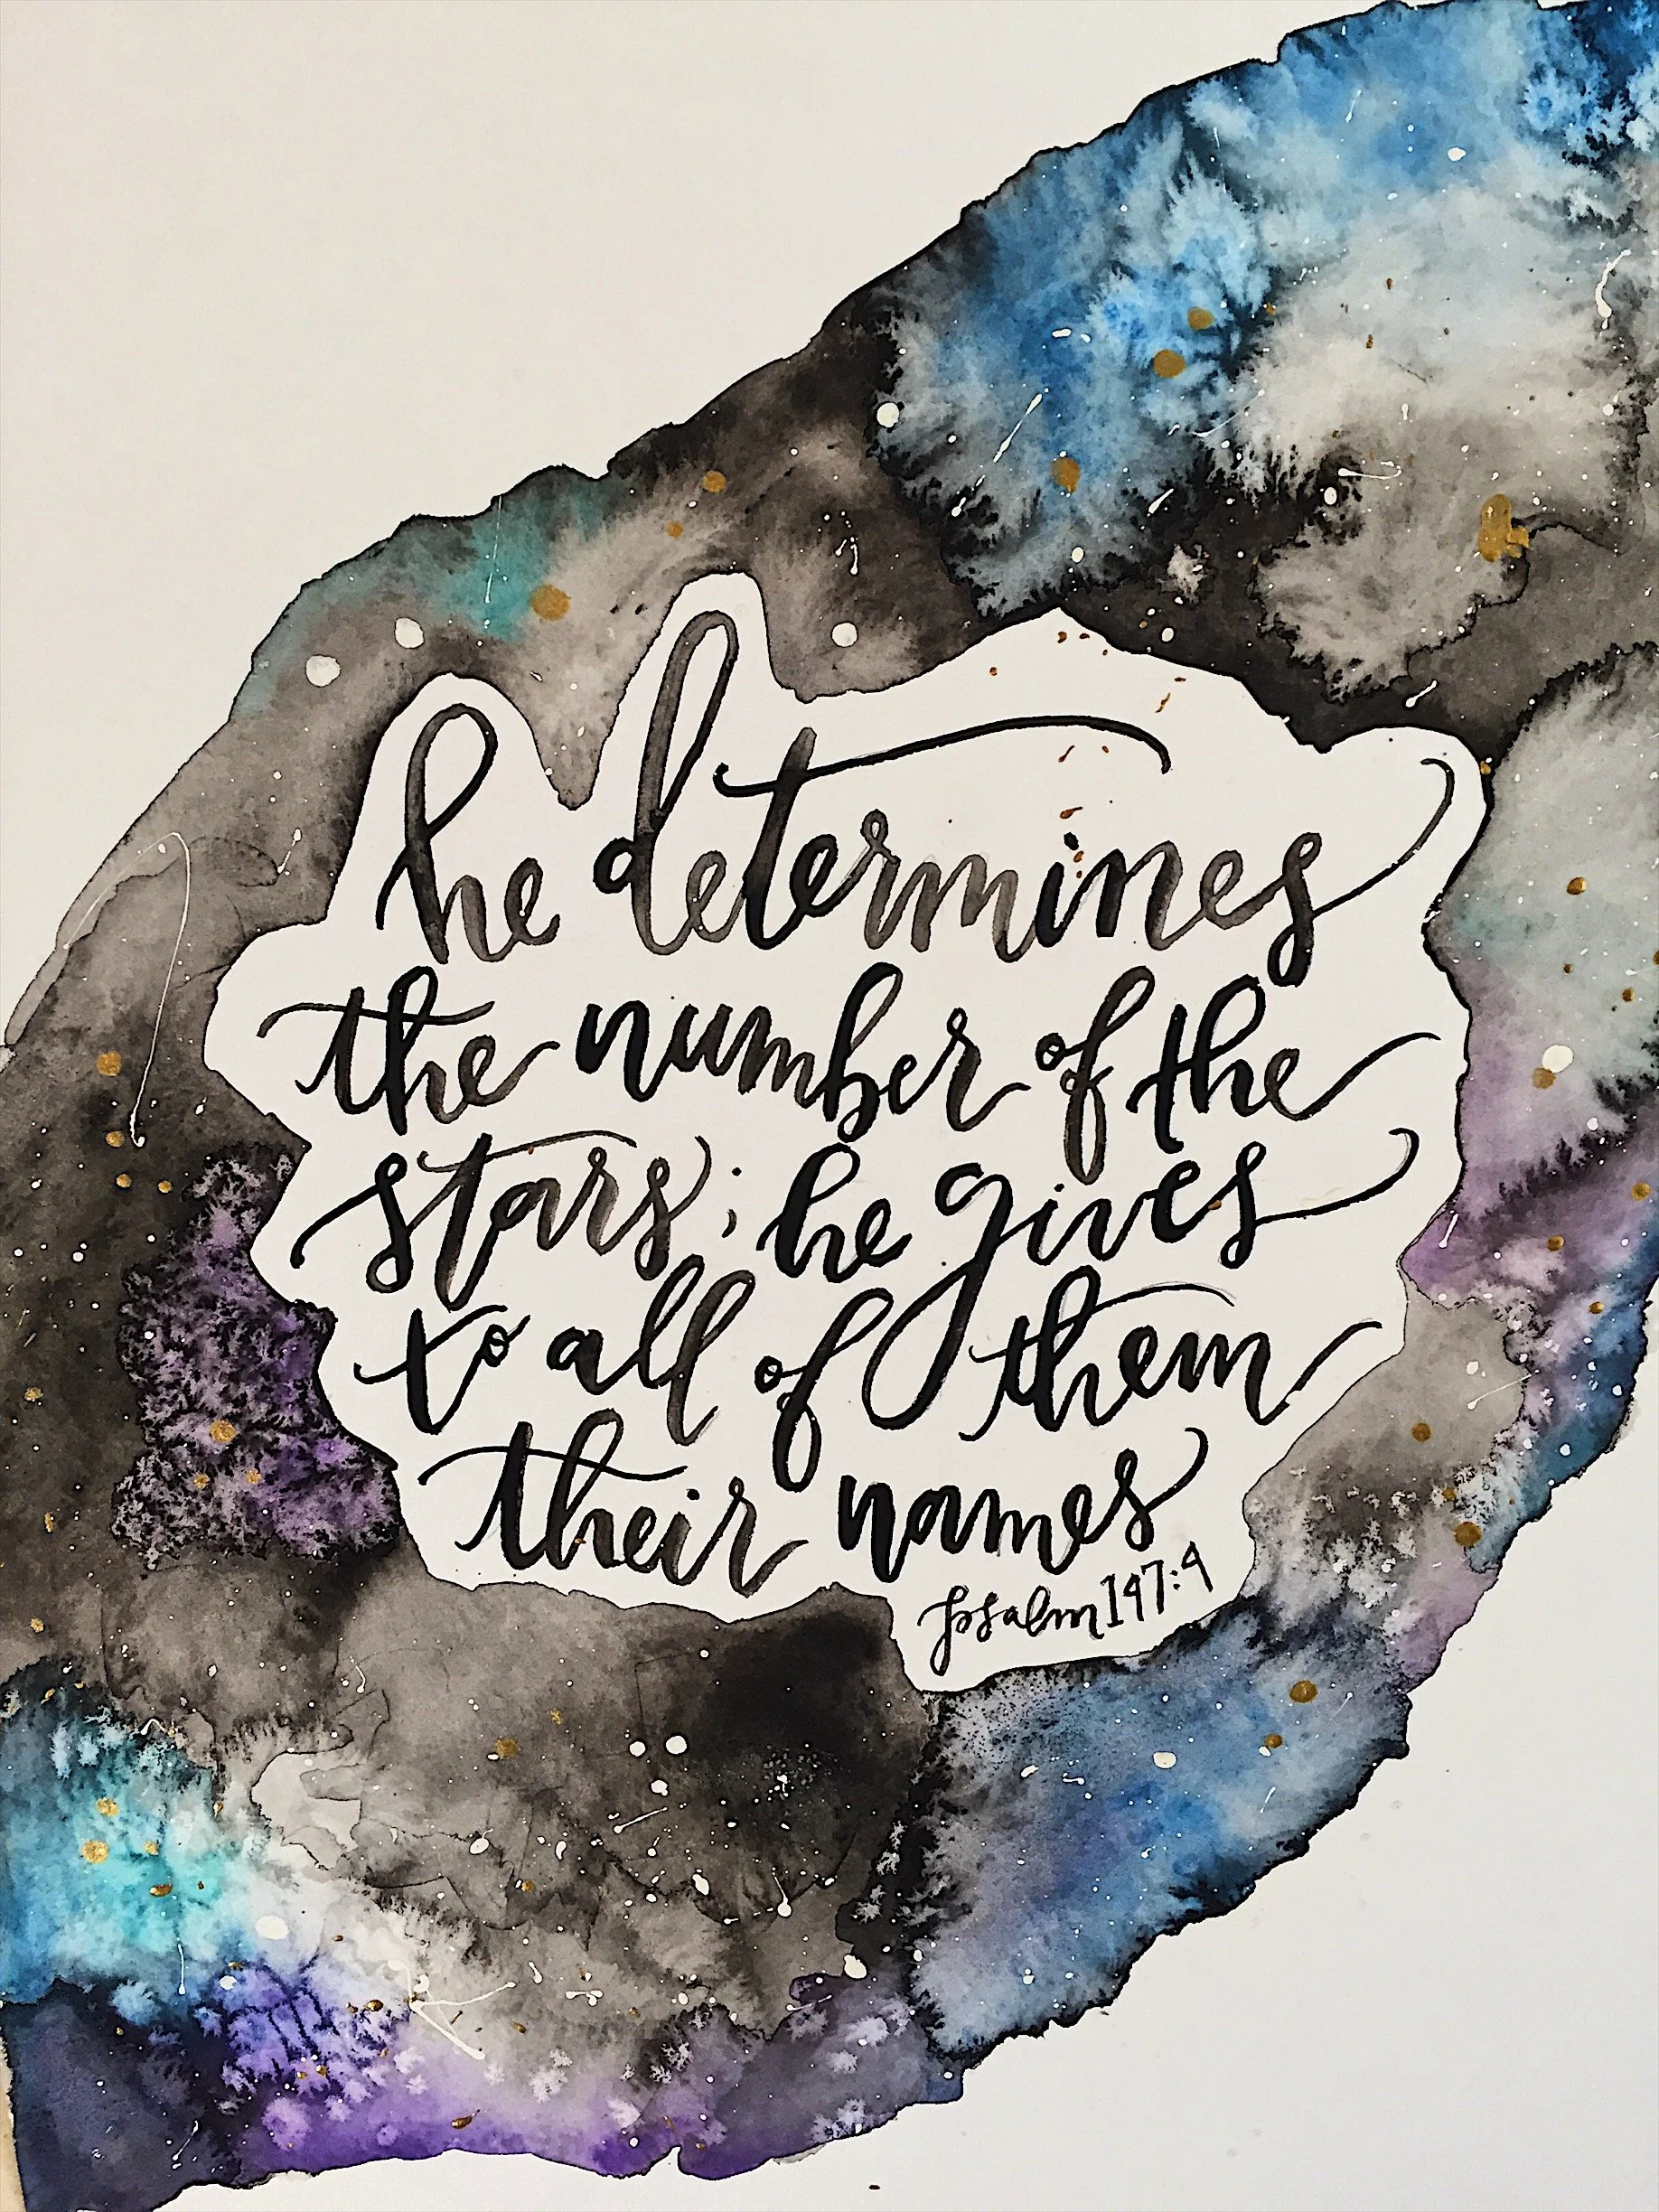 he determines
the number of the
stars; he gives
to all of them
their names
Psalm 147:4